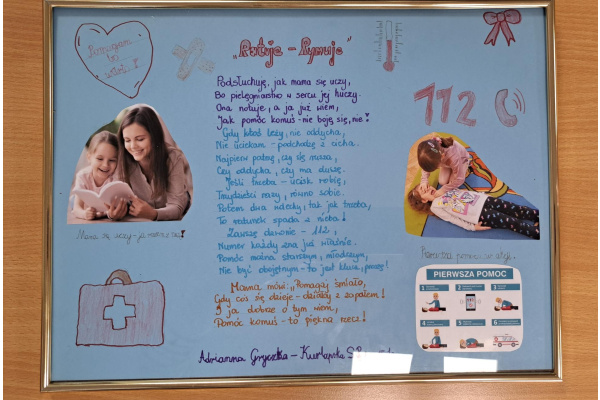 Pomagam
bo
„Ratuję – Rymuję"
Podsłuchuję, jak mama się uczy,
Bo pielęgniarstwo w sercu jej huczy.
Ona notuje, a ja już wiem,
Jak pomóc komuś – nie boję się, nie!
Gdy ktoś leży, nie oddycha,
Nie uciekam – podchodzę z cicha.
Najpierw patrzę, czy się rusza,
Czy oddycha, czy ma duszę.
Jeśli trzeba – ucisk robię,
Trzydzieści razy, równo sobie.
Potem dwa wdechy, tak jak trzeba,
To ratunek spada z nieba!
Zawsze dzwonię – 112,
Numer każdy zna już właśnie.
Pomóc można starszym, młodszym,
Nie być obojętnym – to jest klucz, proszę!
Mama mówi: „Pomagaj śmiało,
Gdy coś się dzieje – działaj z zapałem!
I ja dobrze o tym wiem,
Pomóc komuś – to piękna rzecz!
Adrianna Gryczka – Kurlapska
112
Mama się uczy – ja
Pierwsza pomoc w
PIERWSZA POMOC